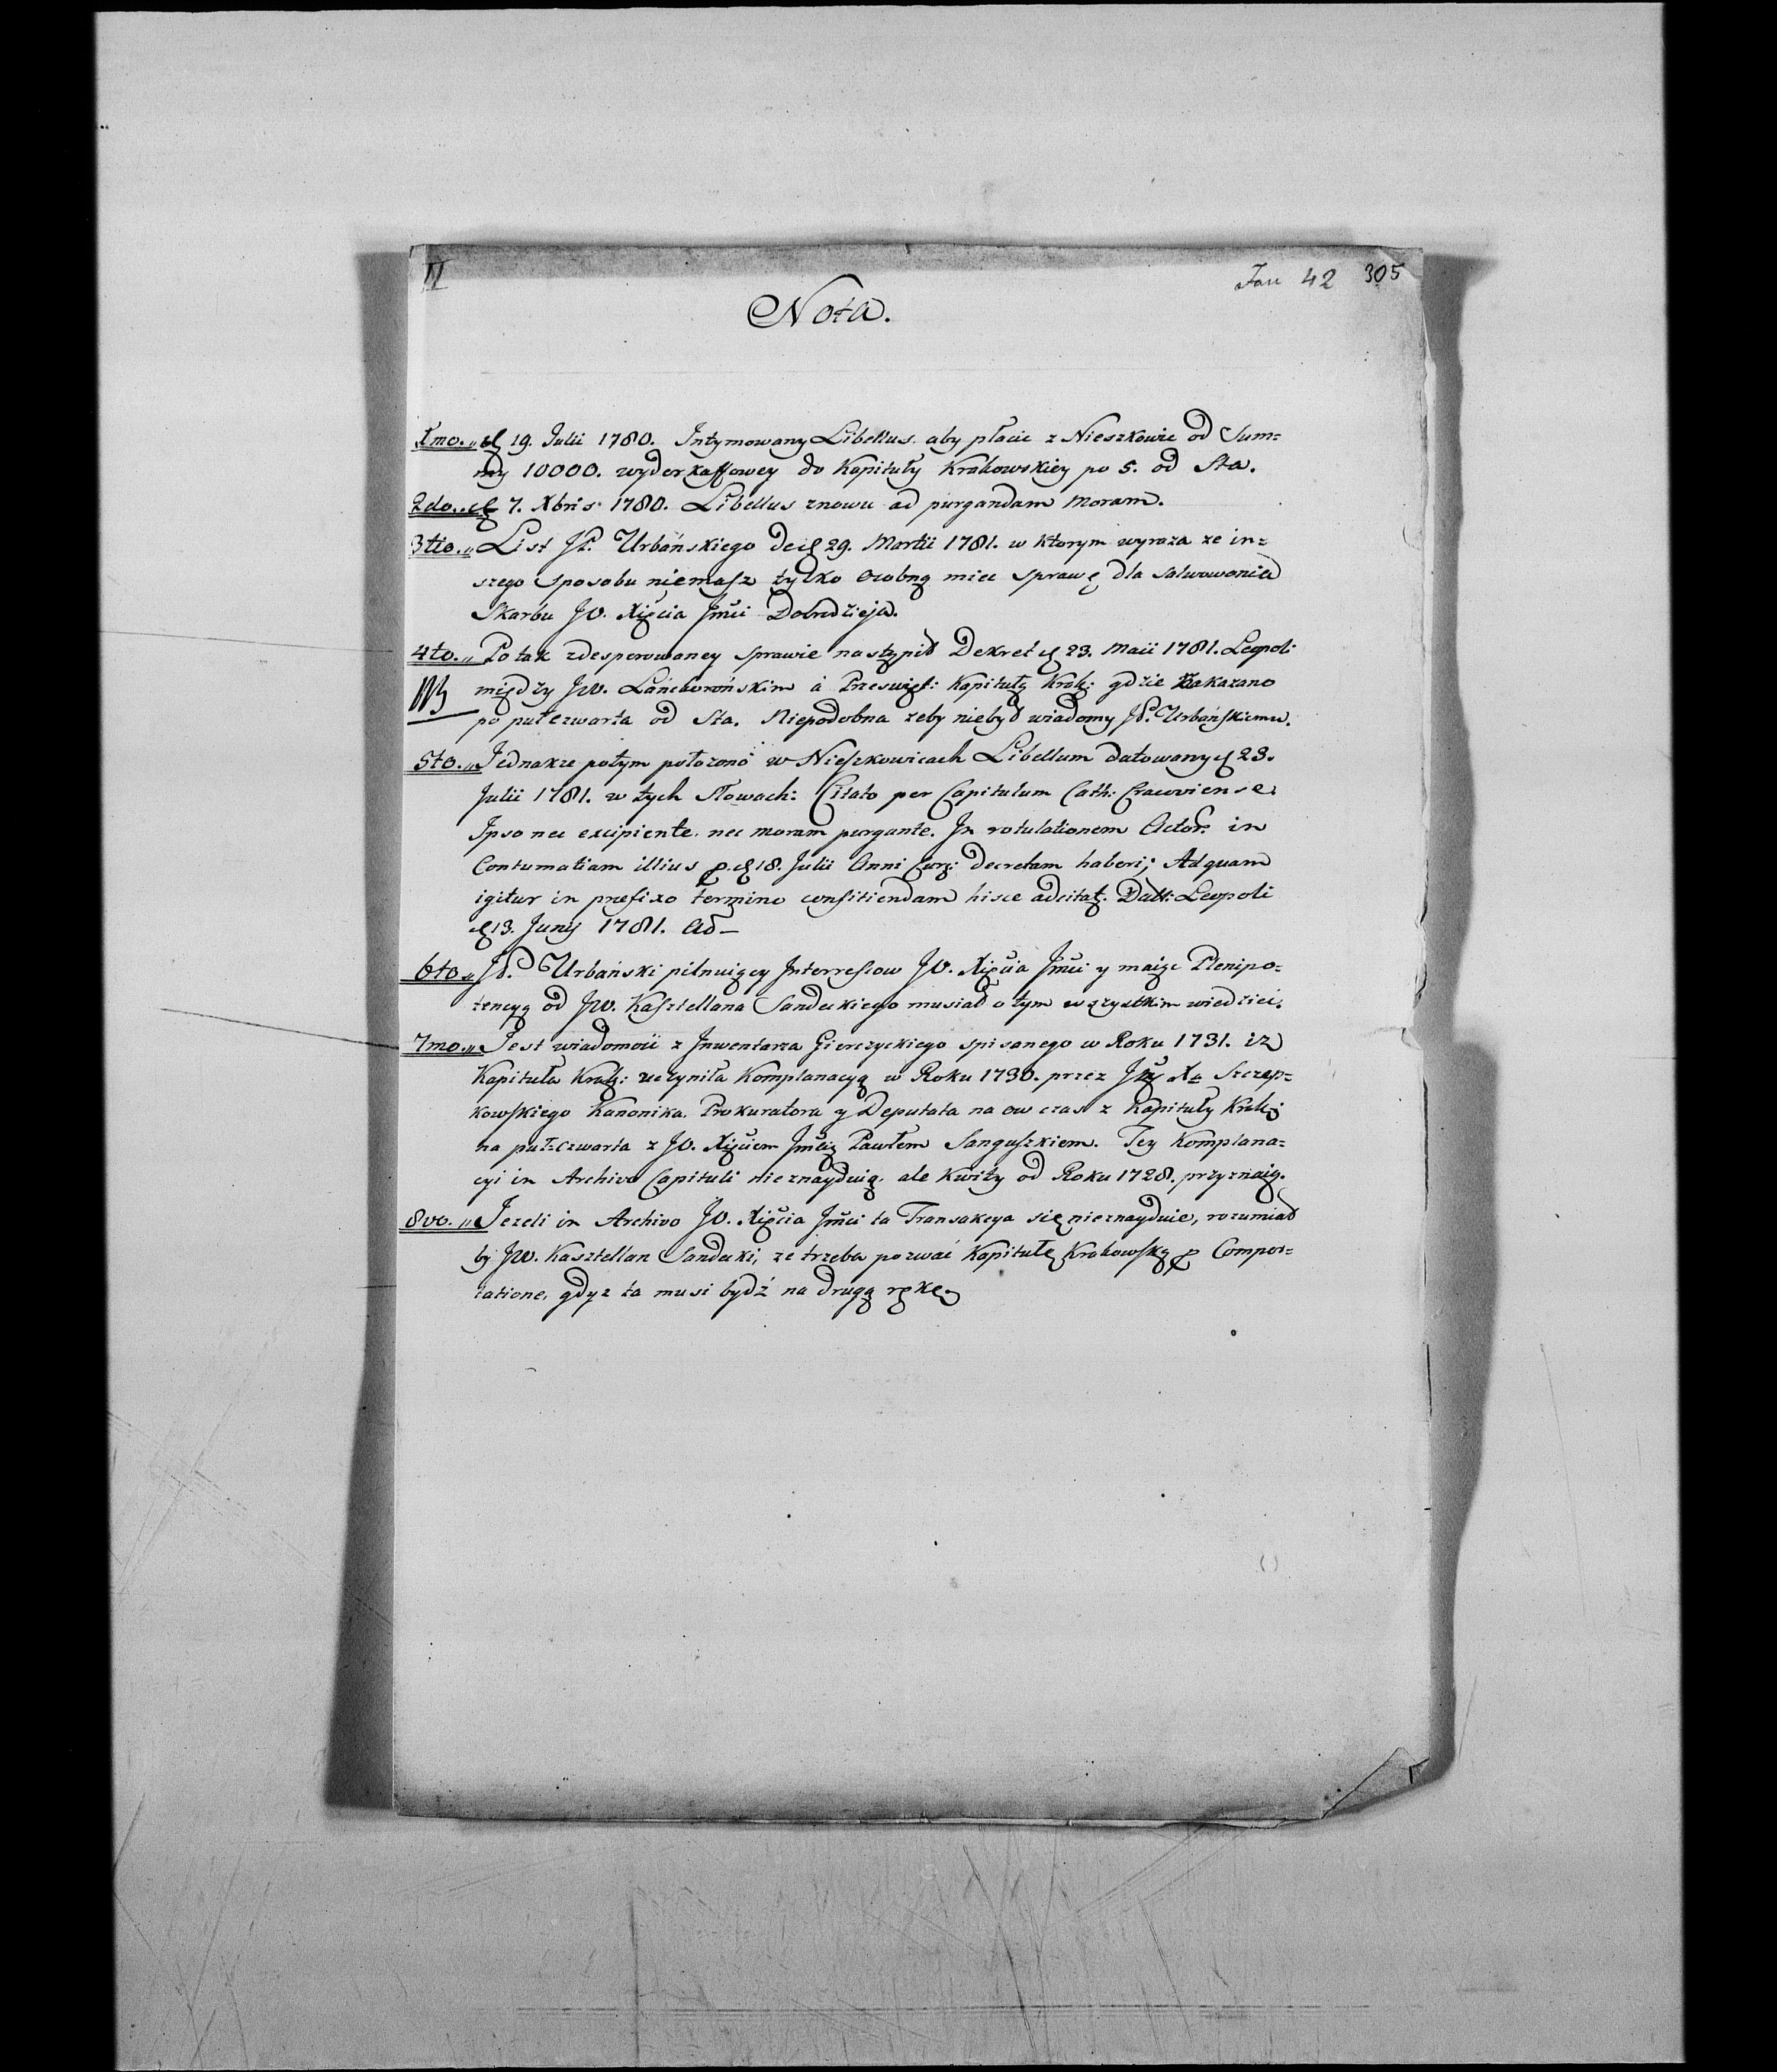 II
Jan 42 305
Nota.
1mo.,, d 19. Julii 1780. Intymowany Libellus aby płacic z Nieszkowic od Sum=
my 10000. wyderkaffowey do Kapituły Krakowskiey po 5. od Sta.
2do.,, d 7. Xbris 1780. Libellus znowu ad purgandam moram.
3tio.,, List JP. Urbańskiego de d 29. Martii 1781. w ktorym wyraza ze in=
szego sposobu niemasz tylko osobną miec sprawę dla salwowania
Skarbu JO. Xięcia Jmci Dobrodzieja.
4to.,, Po tak zdesperowaney sprawie nastąpił Dekret d 23. Maii 1781. Leopoli
NB między JW. Lanckorońskim á Przeswięt: Kapitułą Krak: gdzie nakazano
po puł czwarta od Sta. Niepodobna zeby niebył wiadomy JP. Urbańskiemu.
5to.,, Jednakze potym połozono w Nieszkowicach Libellum datowany d 23.
Julii 1781. w tych Słowach: Citato per Capitulum Cath: Cracoviense
Ipso nec excipiente nec moram purgante. In rotulationem Actor. in
Contumatiam illius p. d 18. Julii Anni Curr: decretam haberi; Ad quam
igitur in prefixo termino conficiendam hisce adcitat. Datt: Leopoli
d 13. Junij 1781. Ad –
6to.,, JP. Urbański pilnuiący Interressow JO. Xięcia Jmci y maiąc Plenipo=
tencyą od JW. Kasztellana Sandeckiego musiał o tym wszystkim wiedziec.
7mo.,, Jest wiadomość z Inwentarza Gierczyckiego spisanego w Roku 1731. iz
Kapituła Krak: uczyniła Komplanacyą w Roku 1730. przez Xa Szczep=
kowskiego Kanonika Prokuratora y Deputata na ow czas z Kapituły Krak:
na puł czwarta z JO. Xięciem Jmcią Pawłem Sanguszkiem. Tey Komplana=
cyi in Archivo Capituli nieznayduią, ale Kwity od Roku 1728. przyznaią.
8vo.,, Jezeli in Archivo JO. Xięcia Jmci ta Transakcya się nieznayduie, rozumiał
by JW. Kasztellan Sandecki, ze trzeba pozwać Kapitułę Krakowską p Compor=
tatione, gdyz ta musi bydź na drugą rękę.